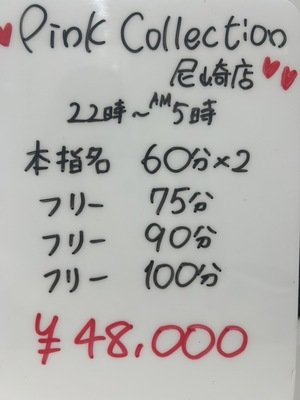 Pink Collection
尼崎店
22時〜AM5時
本指名 60分×2
フリー 75分
フリー 90分
フリー 100分
¥48,000